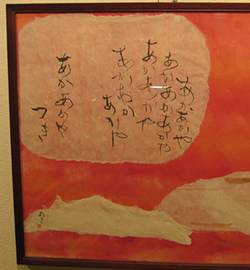 あかあかや
あかあかあかや
あかあかや
あかあか
あかや
あかあかや
つき